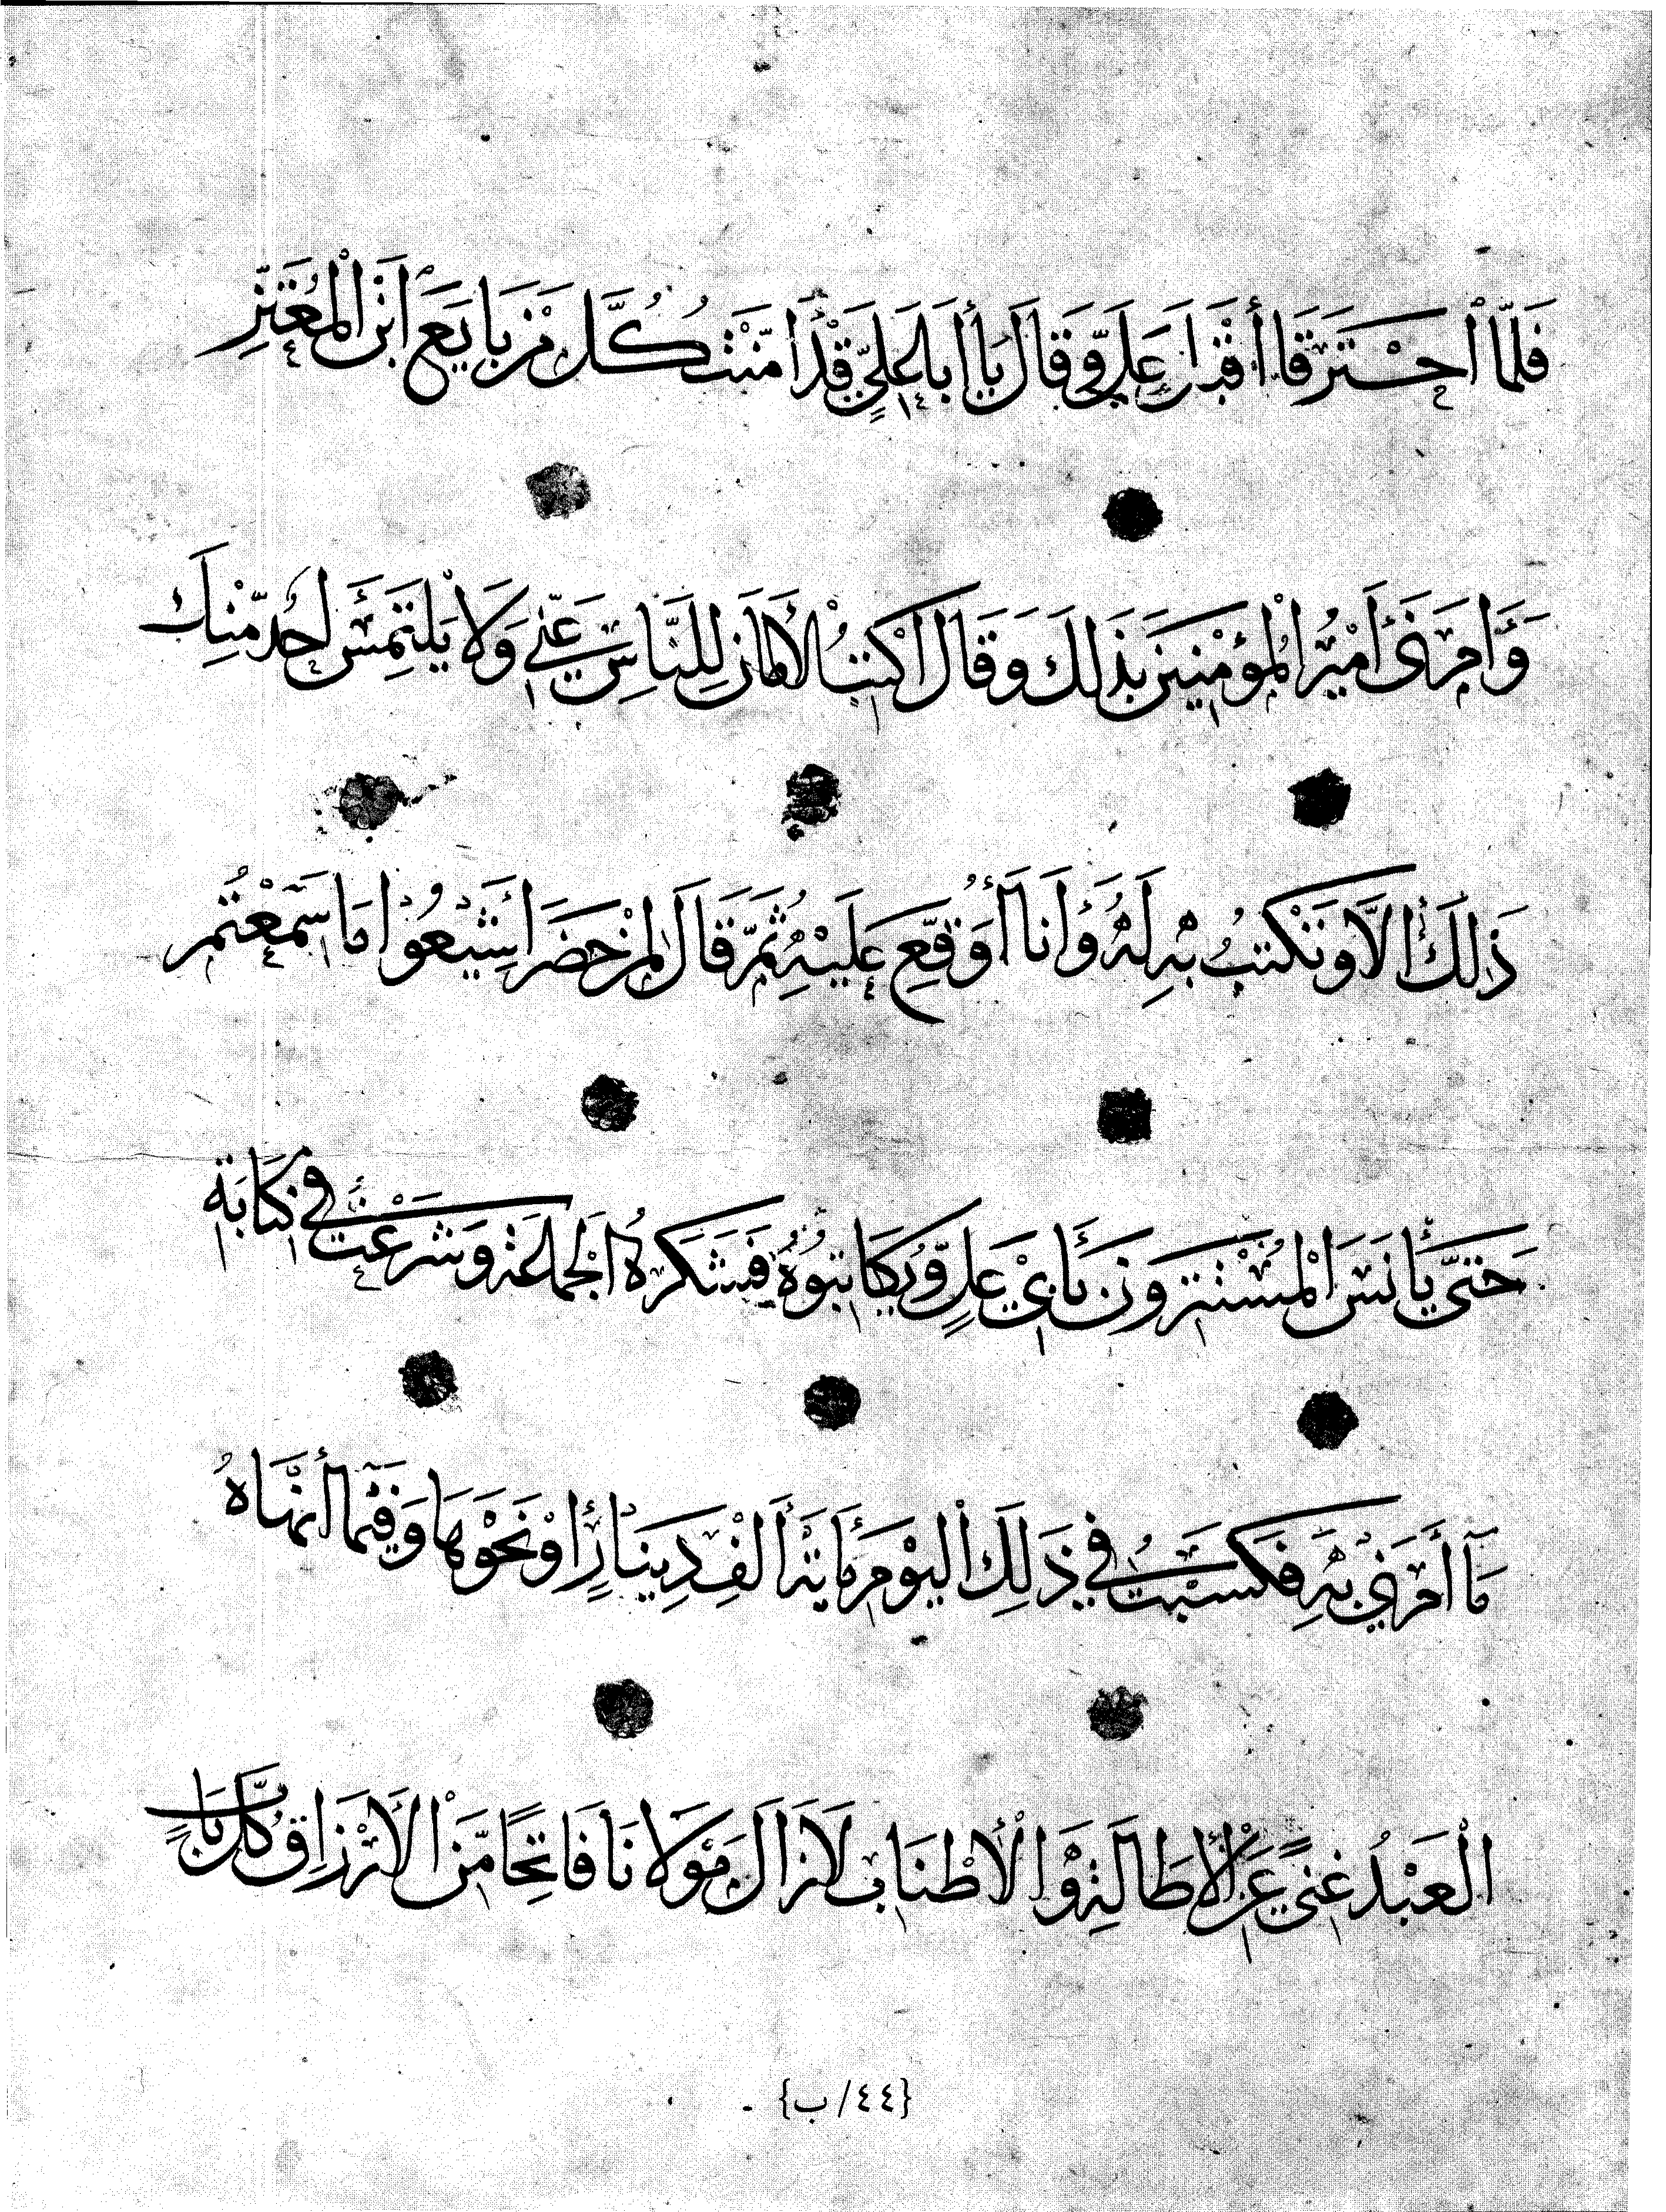 فَلَمَّا احْتَرَقَا أَقْبَلَ عَلَيَّ وَقَالَ يَا أَبَا عَلِيٍّ قَدْ أَمَّنْتُ كُلَّ مَنْ بَايَعَ ابْنَ الْمُعْتَزِّ
وَأَمَرَنِي أَمِيرُ الْمُؤْمِنِينَ بِذَلِكَ وَقَالَ اكْتُبْ الْأَمَانَ لِلنَّاسِ عَنِّي وَلَا يَلْتَمِسُ أَحَدٌ مِنْكَ
ذَلِكَ إِلَّا وَتَكْتُبُ بِهِ لَهُ وَأَنَا أُوَقِّعُ عَلَيْهِ ثُمَّ قَالَ لِمَنْ حَضَرَ أَشِيعُوا مَا سَمِعْتُمْ
حَتَّى يَأْنَسَ الْمُسْتَتِرُونَ بِأَبِي عَلِيٍّ وَيُكَاتِبُوهُ فَشَكَرَهُ الْجَمَاعَةُ وَشَرَعْتُ فِي كِتَابَةِ
مَا أَمَرَنِي بِهِ فَكَسَبْتُ فِي ذَلِكَ الْيَوْمِ مِائَةَ أَلْفِ دِينَارٍ أَوْ نَحْوَهَا وَفِيمَا أَنْهَاهُ
الْعَبْدُ غِنًى عَنِ الْإِطَالَةِ وَالْإِطْنَابِ لَا زَالَ مَوْلَانَا فَاتِحًا مِّنَ الْأَرْزَاقِ كُلَّ بَابٍ
{٤٤/ب}